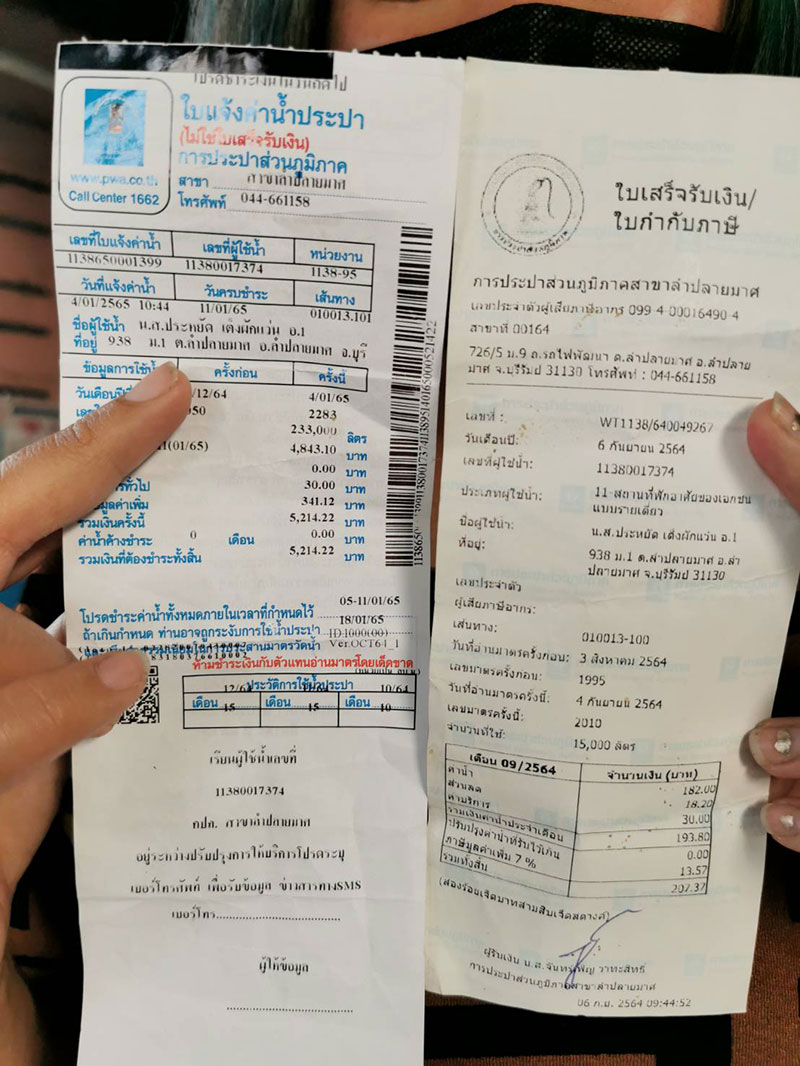 โปรดชำระเงินในวันถัดไป
ใบแจ้งค่าน้ำประปา
(ไม่ใช่ใบเสร็จรับเงิน)
การประปาส่วนภูมิภาค
www.pwa.co.th
Call Center 1662
สาขา สาขาลำปลายมาศ
โทรศัพท์ 044-661158
เลขที่ใบแจ้งค่าน้ำ เลขที่ผู้ใช้น้ำ หน่วยงาน
1138650001399 11380017374 1138-95
วันที่แจ้งค่าน้ำ วันครบชำระ เส้นทาง
4/01/2565 10:44 11/01/65 010013.101
ชื่อผู้ใช้น้ำ น.ส.ประหยัด เต็งผักแว่น อ.1
ที่อยู่ 938 ม.1 ต.ลำปลายมาศ อ.ลำปลายมาศ จ.บุรี
ข้อมูลการใช้น้ำ ครั้งก่อน ครั้งนี้
วันเดือนปีที่ /12/64 4/01/65
050 2283
233,000 ลิตร
(01/65) 4,843.10 บาท
0.00 บาท
ทั่วไป 30.00 บาท
มูลค่าเพิ่ม 341.12 บาท
รวมเงินครั้งนี้ 5,214.22 บาท
ค่าน้ำค้างชำระ 0 เดือน 0.00 บาท
รวมเงินที่ต้องชำระทั้งสิ้น 5,214.22 บาท
05-11/01/65
โปรดชำระค่าน้ำทั้งหมดภายในเวลาที่กำหนดไว้
18/01/65
ถ้าเกินกำหนด ท่านอาจถูกระงับการใช้น้ำประปา ID:1000(00)
Ver.OCT64_1
ห้ามชำระเงินกับตัวแทนอ่านมาตรโดยเด็ดขาด
ประวัติการใช้น้ำประปา
12/64 10/64
เดือน 15 เดือน 15 เดือน 10
เรียนผู้ใช้น้ำเลขที่
11380017374
กปภ. สาขาลำปลายมาศ
อยู่ระหว่างปรับปรุงการให้บริการโปรดระบุ
เบอร์โทรศัพท์ เพื่อรับข้อมูล ข่าวสารทางSMS
เบอร์โทร..............................
ผู้ให้ข้อมูล
..............................
ใบเสร็จรับเงิน/
ใบกำกับภาษี
การประปาส่วนภูมิภาคสาขาลำปลายมาศ
เลขประจำตัวผู้เสียภาษีอากร 099-4-00016490-4
สาขาที่ 00164
726/5 ม.9 ถ.รถไฟพัฒนา ต.ลำปลายมาศ อ.ลำปลาย
มาศ จ.บุรีรัมย์ 31130 โทรศัพท์ : 044-661158
เลขที่ : WT1138/640049267
วันเดือนปี: 6 กันยายน 2564
เลขที่ผู้ใช้น้ำ: 11380017374
ประเภทผู้ใช้น้ำ: 11-สถานที่พักอาศัยของเอกชน
แบบรายเดี่ยว
ชื่อผู้ใช้น้ำ: น.ส.ประหยัด เต็งผักแว่น อ.1
ที่อยู่: 938 ม.1 ต.ลำปลายมาศ อ.ลำ
ปลายมาศ จ.บุรีรัมย์ 31130
เลขประจำตัว
ผู้เสียภาษีอากร:
เส้นทาง: 010013-100
วันที่อ่านมาตรครั้งก่อน: 3 สิงหาคม 2564
เลขมาตรครั้งก่อน: 1995
วันที่อ่านมาตรครั้งนี้: 4 กันยายน 2564
เลขมาตรครั้งนี้: 2010
จำนวนที่ใช้: 15,000 ลิตร
เดือน 09/2564 จำนวนเงิน (บาท)
ค่าน้ำ 182.00
ส่วนลด 18.20
ค่าบริการ 30.00
รวมเงินค่าน้ำประจำเดือน 193.80
ปรับปรุงค่าน้ำที่รับไว้เกิน 0.00
ภาษีมูลค่าเพิ่ม 7 % 13.57
รวมทั้งสิ้น 207.37
(สองร้อยเจ็ดบาทสามสิบเจ็ดสตางค์)
ผู้รับเงิน น.ส.จันทร์เพ็ญ วาทะสิทธิ์
การประปาส่วนภูมิภาคสาขาลำปลายมาศ
06 ก.ย. 2564 09:44:52